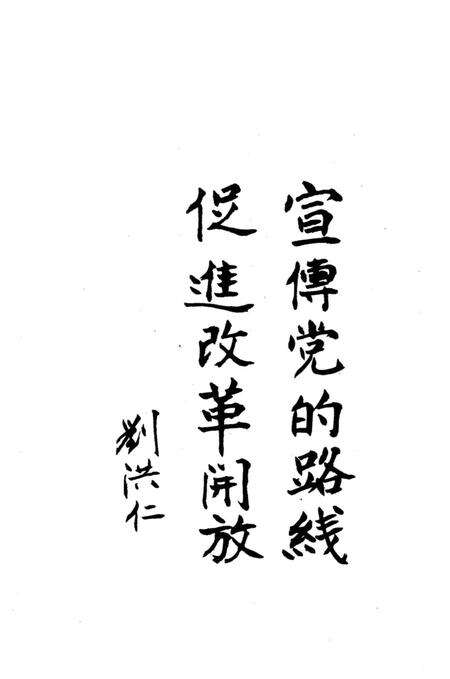 宣傳党的路线
促進改革開放
劉洪仁